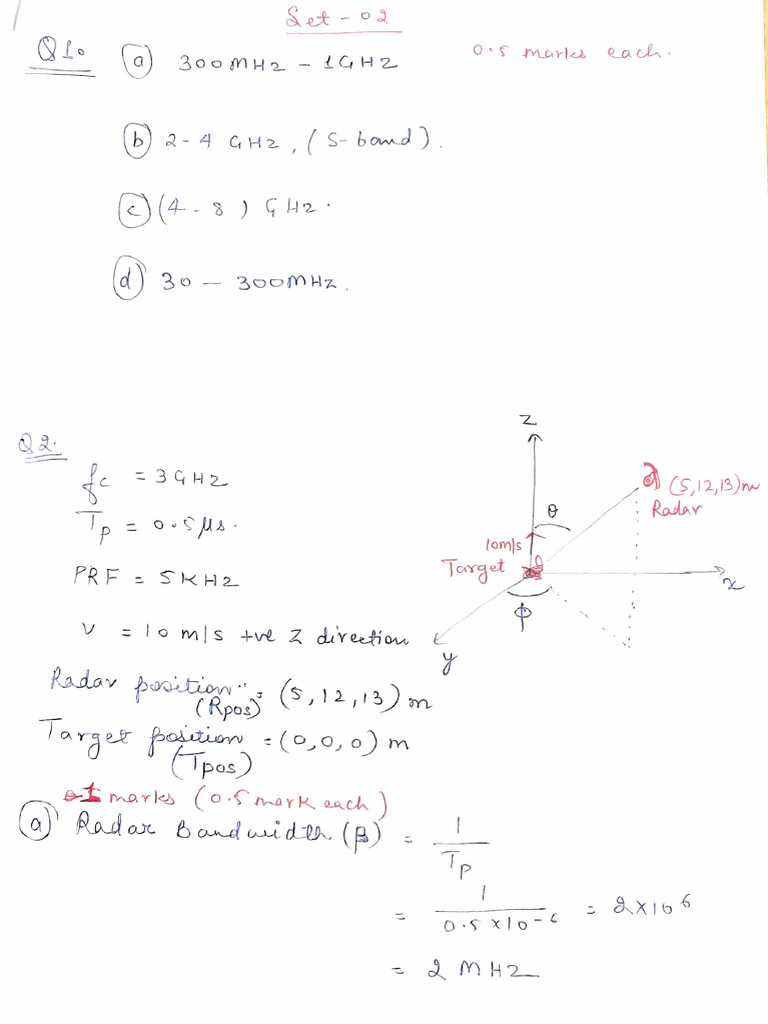 Set - 02
Q1. (a) 300MHz - 1GHz 0.5 marks each.
(b) 2-4 GHz, (S-band).
(c) (4-8) GHz.
(d) 30 — 300MHz.
Q2.
fc = 3GHz
Tp = 0.5μs.
PRF = 5KHz
V = 10 m/s +ve Z direction
Radar position = (5, 12, 13) m
(Rpos)
Target position = (0, 0, 0) m
(Tpos)
z
θ
(5, 12, 13) m
Radar
10m/s
Target
x
ϕ
y
1 marks (0.5 mark each)
(a) Radar Bandwidth (β) = 1/Tp
= 1/(0.5 × 10^-6) = 2×10^6
= 2 MHz